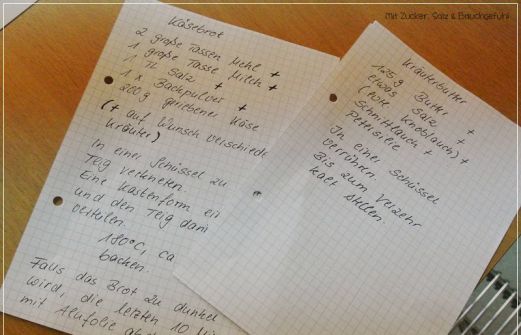 Mit Zucker, Salz & Bauchgefühl
Käsebrot
2 große Tassen Mehl +
1 große Tasse Milch +
1 TL Salz +
1 x Backpulver +
200g geriebener Käse
(+ auf Wunsch verschiede
Kräuter)
In einer Schüssel zu
Teig verkneten.
Eine Kastenform ei
und den Teig dari
verteilen.
180°C, ca
backen.
Falls das Brot zu dunkel
wird, die letzten 10 Mi
mit Alufolie
Kräuterbutter
125g Butter +
etwas Salz +
(
Knoblauch) +
Schnittlauch +
Petersilie
In einer Schüssel
verrühren.
Bis zum Verzehr
kalt stellen.